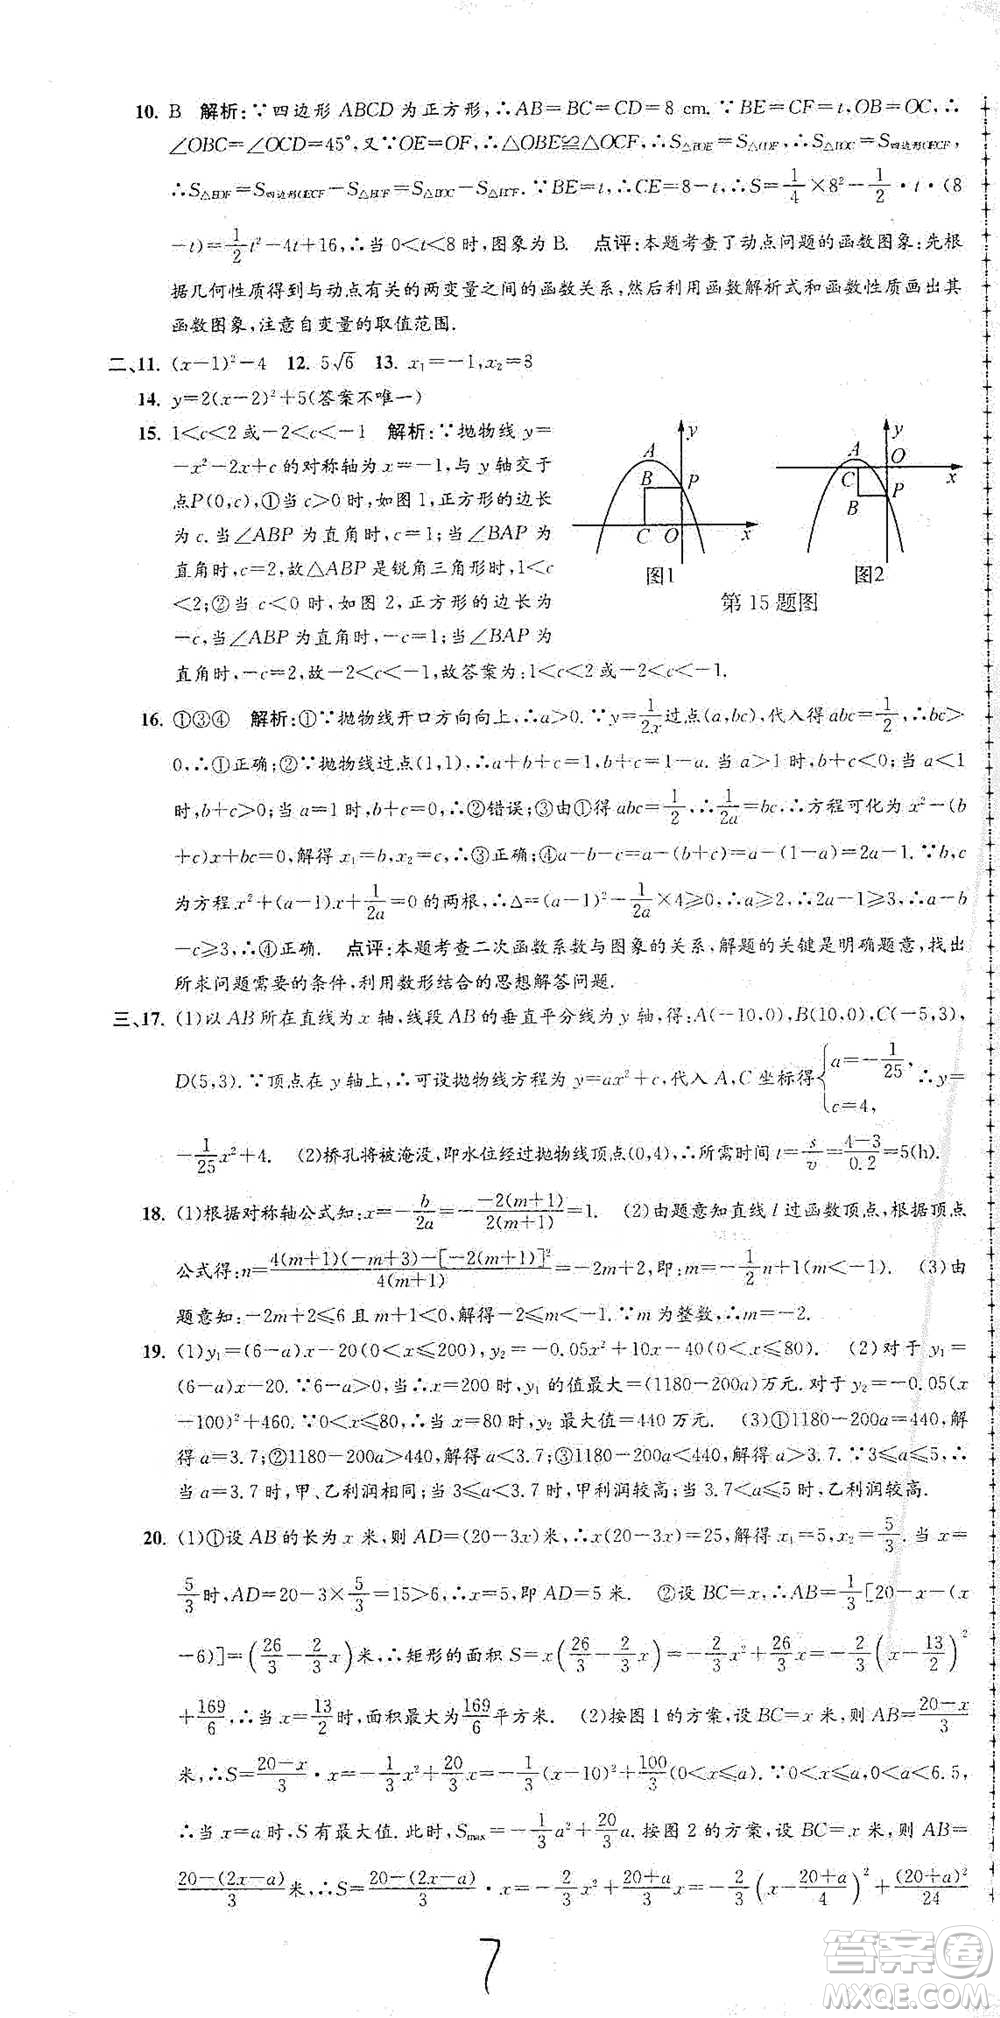 10. B 解析:∵四边形 ABCD 为正方形,∴AB=BC=CD=8 cm.∵BE=CF=t,OB=OC,∴
∠OBC=∠OCD=45°,又∵OE=OF,∴△OBE≌△OCF,∴S△BOE=S△COF,∴S△BOC=S四边形OECF,
∴S△EOF=S四边形OECF-S△ECF=S△BOC-S△ECF.∵BE=t,∴CE=8-t,∴S=1/4×8²-1/2·t·(8
-t)=1/2t²-4t+16,∴当 0<t<8 时,图象为 B. 点评:本题考查了动点问题的函数图象:先根
据几何性质得到与动点有关的两变量之间的函数关系,然后利用函数解析式和函数性质画出其
函数图象,注意自变量的取值范围.
二、11. (x-1)²-4 12. 5√6 13. x₁=-1,x₂=3
14. y=2(x-2)²+5(答案不唯一)
15. 1<c<2 或-2<c<-1 解析:∵抛物线 y=
-x²-2x+c 的对称轴为 x=-1,与 y 轴交于
点 P(0,c),①当 c>0 时,如图 1,正方形的边长
为 c.当∠ABP 为直角时,c=1;当∠BAP
为直角时,c=2,故△ABP 是锐角三角形时,1<c
<2;②当 c<0 时,如图 2,正方形的边长为
-c,当∠ABP 为直角时,-c=1;当∠BAP 为
直角时,-c=2,故-2<c<-1,故答案为:1<c<2 或-2<c<-1.
y A B P C O x
图1
A y O C x B P
图2
第 15 题图
16. ①③④ 解析:①∵抛物线开口方向向上,∴a>0.∵y=1/2x过点(a,bc),代入得 abc=1/2,∴bc>
0,∴①正确;②∵抛物线过点(1,1),∴a+b+c=1,∴b+c=1-a.当 a>1 时,b+c<0;当 a<1
时,b+c>0;当 a=1 时,b+c=0,∴②错误;③由①得 abc=1/2,∴1/2a=bc,∴方程可化为 x²-(b
+c)x+bc=0,解得 x₁=b,x₂=c,∴③正确;④a-b-c=a-(b+c)=a-(1-a)=2a-1.∵b,c
为方程 x²+(a-1)x+1/2a=0 的两根,∴Δ=(a-1)²-1/2a×4≥0,∴2a-1≥3,∴a-b
-c≥3,∴④正确. 点评:本题考查二次函数系数与图象的关系,解题的关键是明确题意,找出
所求问题需要的条件,利用数形结合的思想解答问题.
三、17. (1)以 AB 所在直线为 x 轴,线段 AB 的垂直平分线为 y 轴,得:A(-10,0),B(10,0),C(-5,3),
D(5,3).∵顶点在 y 轴上,∴可设抛物线方程为 y=ax²+c,代入 A,C 坐标得{a=-1/25, c=4, ∴y=
-1/25x²+4. (2)桥孔将被淹没,即水位经过抛物线顶点(0,4),∴所需时间 t=s/v=(4-3)/0.2=5(h).
18. (1)根据对称轴公式知:x=-b/2a=-(-2(m+1))/(2(m+1))=1. (2)由题意知直线 l 过函数顶点,根据顶点
公式得:n=(4(m+1)(-m+3)-[-2(m+1)]²)/(4(m+1))=-2m+2,即:m=-1/2n+1. (3)由
题意知:-2m+2≤6 且 m+1<0,解得-2≤m<-1.∵m 为整数,∴m=-2.
19. (1)y₁=(6-a)x-20(0<x≤200),y₂=-0.05x²+10x-40(0<x≤80). (2)对于 y₁=
(6-a)x-20.∵6-a>0,∴当 x=200 时,y₁ 的值最大=(1180-200a)万元.对于 y₂=-0.05(x
-100)²+460.∵0<x≤80,∴当 x=80 时,y₂ 最大值=440 万元. (3)①1180-200a=440,解
得 a=3.7;②1180-200a>440,解得 a<3.7;③1180-200a<440,解得 a>3.7.∵3≤a≤5,∴
当 a=3.7 时,甲、乙利润相同;当 3≤a<3.7 时,甲利润较高;当 3.7<a≤5 时,乙利润较高.
20. (1)①设 AB 的长为 x 米,则 AD=(20-3x)米,∴x(20-3x)=25,解得 x₁=5,x₂=5/3.当 x=
5/3时,AD=20-3×5/3=15>6,∴x=5,即 AD=5 米. ②设 BC=x,∴AB=1/3[20-x-(x
-6)]=(26/3-2/3x)米,∴矩形的面积 S=x(26/3-2/3x)=-2/3x²+26/3x=-2/3(x-13/2)²
+169/6,∴当 x=13/2时,面积最大为169/6平方米. (2)按图 1 的方案,设 BC=x 米,则 AB=(20-x)/3
米,∴S=(20-x)/3·x=-1/3x²+20/3x=-1/3(x-10)²+100/3(0<x≤a).∵0<x≤a,0<a<6.5,
∴当 x=a 时,S 有最大值.此时,Smax=-1/3a²+20/3a.按图 2 的方案,设 BC=x 米,则 AB=
(20-(2x-a))/3米,∴S=(20-(2x-a))/3·x=-2/3x²+(20+a)/3x=-2/3(x-(20+a)/4)²+(20+a)²/24
7
答案圈
MXQE.COM